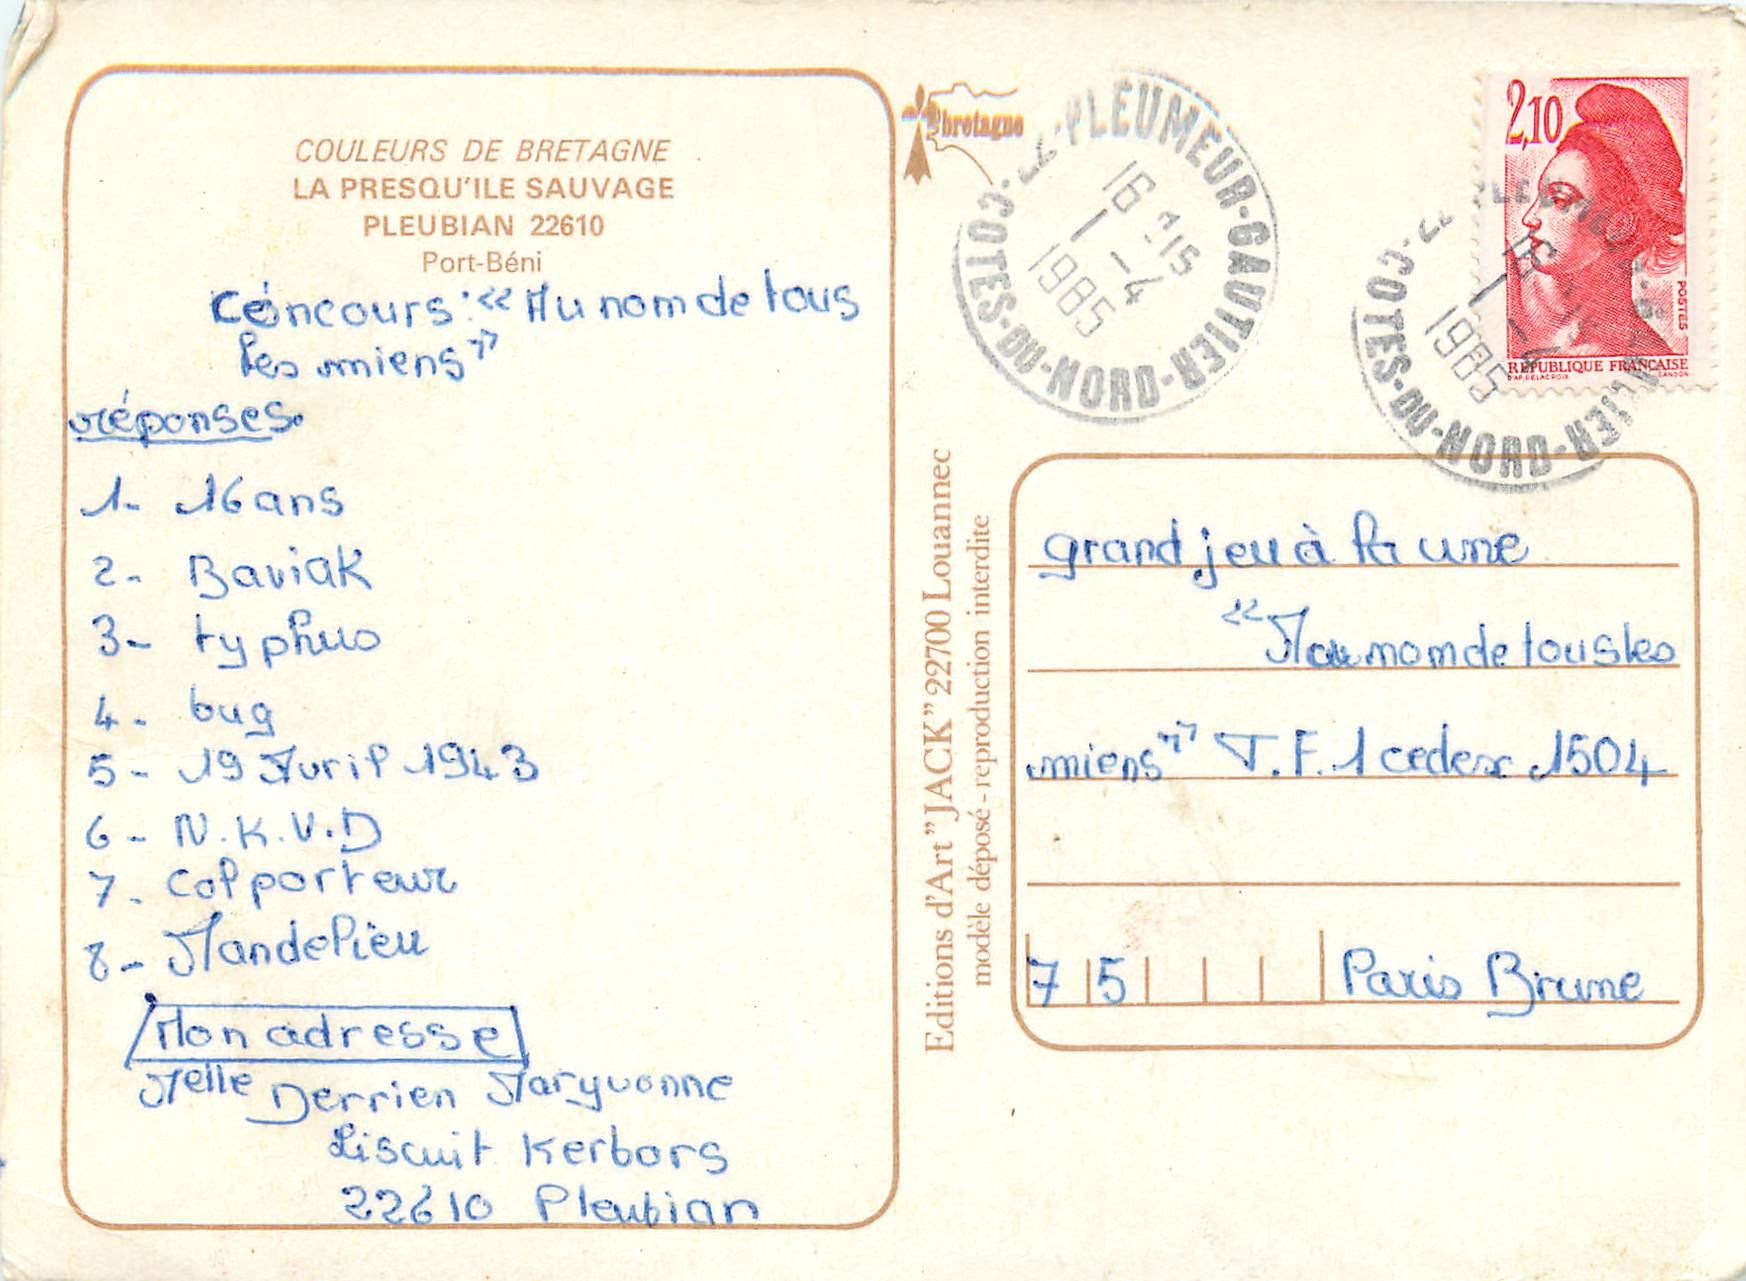 COULEURS DE BRETAGNE
LA PRESQU'ILE SAUVAGE
PLEUBIAN 22610
Port-Béni
Concours: "Au nom de tous
les miens"
réponses.
1- 16 ans
2- Baviak
3- typhus
4- bug
5- 19 Avril 1943
6- N.K.V.D
7- Colporteur
8- Mandelieu
Mon adresse
Melle Derrien Maryvonne
Liscuit Kerbors
22610 Pleubian
bretagne
Editions d'Art "JACK" 22700 Louannec
modèle déposé - reproduction interdite
22-PLEUMEUR-GAUTIER-COTES-DU-NORD
16 H15
1-4
1985
2,10
POSTES
REPUBLIQUE FRANÇAISE
D'AP. DELACROIX GANDON
22 PLEUMEUR-GAUTIER-COTES-DU-NORD
16 H15
1-4
1985
grand jeu à la une
"Au nom de tous les
miens" T.F.1 cedex 1504
75 Paris Brune